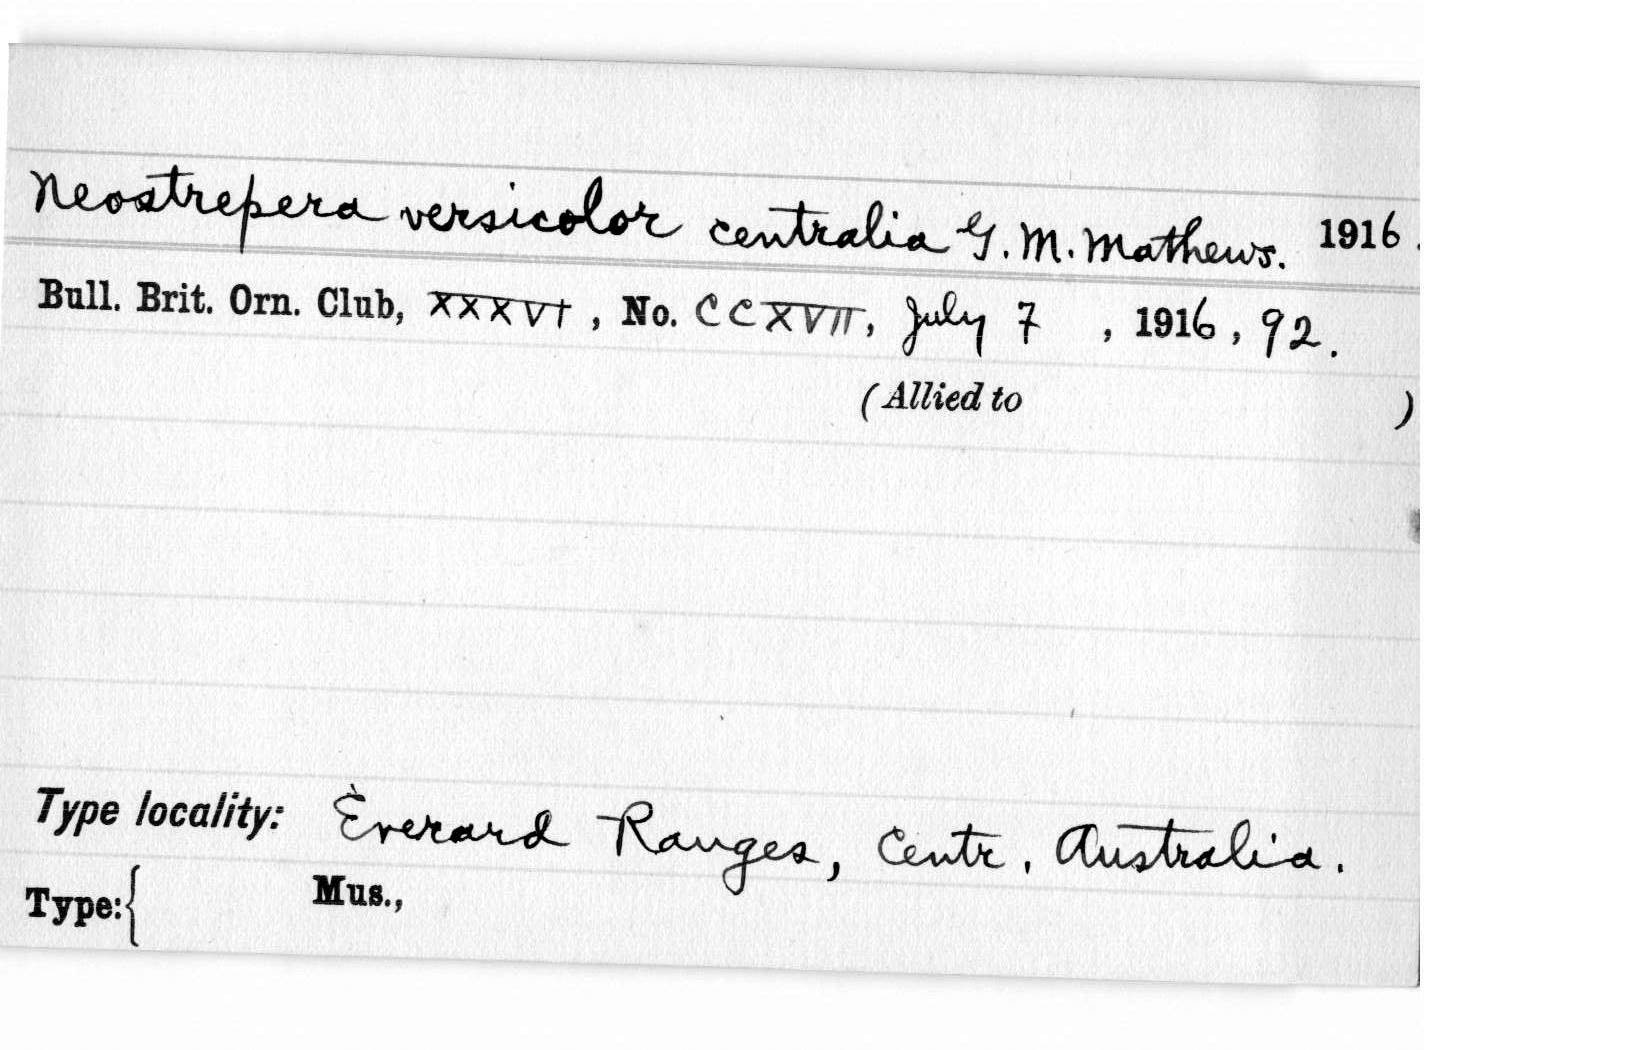 Neostrepera versicolor centralia G. M. Mathews. 1916.
Bull. Brit. Orn. Club, XXXVI, No. CCXVII, July 7, 1916, 92.
(Allied to )
Type locality: Everard Ranges, Centr. Australia.
Type:{ Mus.,